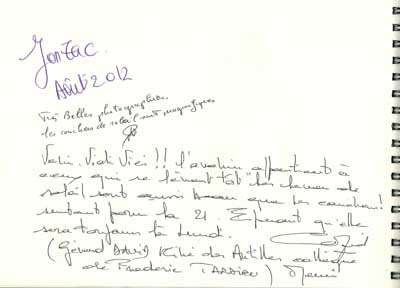 Jonzac.
Août 2012
Très Belles photographies.
les couchers de soleil sont magnifiques
Veni. Vidi Vici !! l'avenir appartient à
ceux qui se lèvent tôt "les levers de
soleil sont aussi beaux que les couchers!
surtout pour la 21. Espérant qu'elle
sera toujours la
(Gérard David Kiné des Antilles collègue
de Frederic TARDIEU) Merci